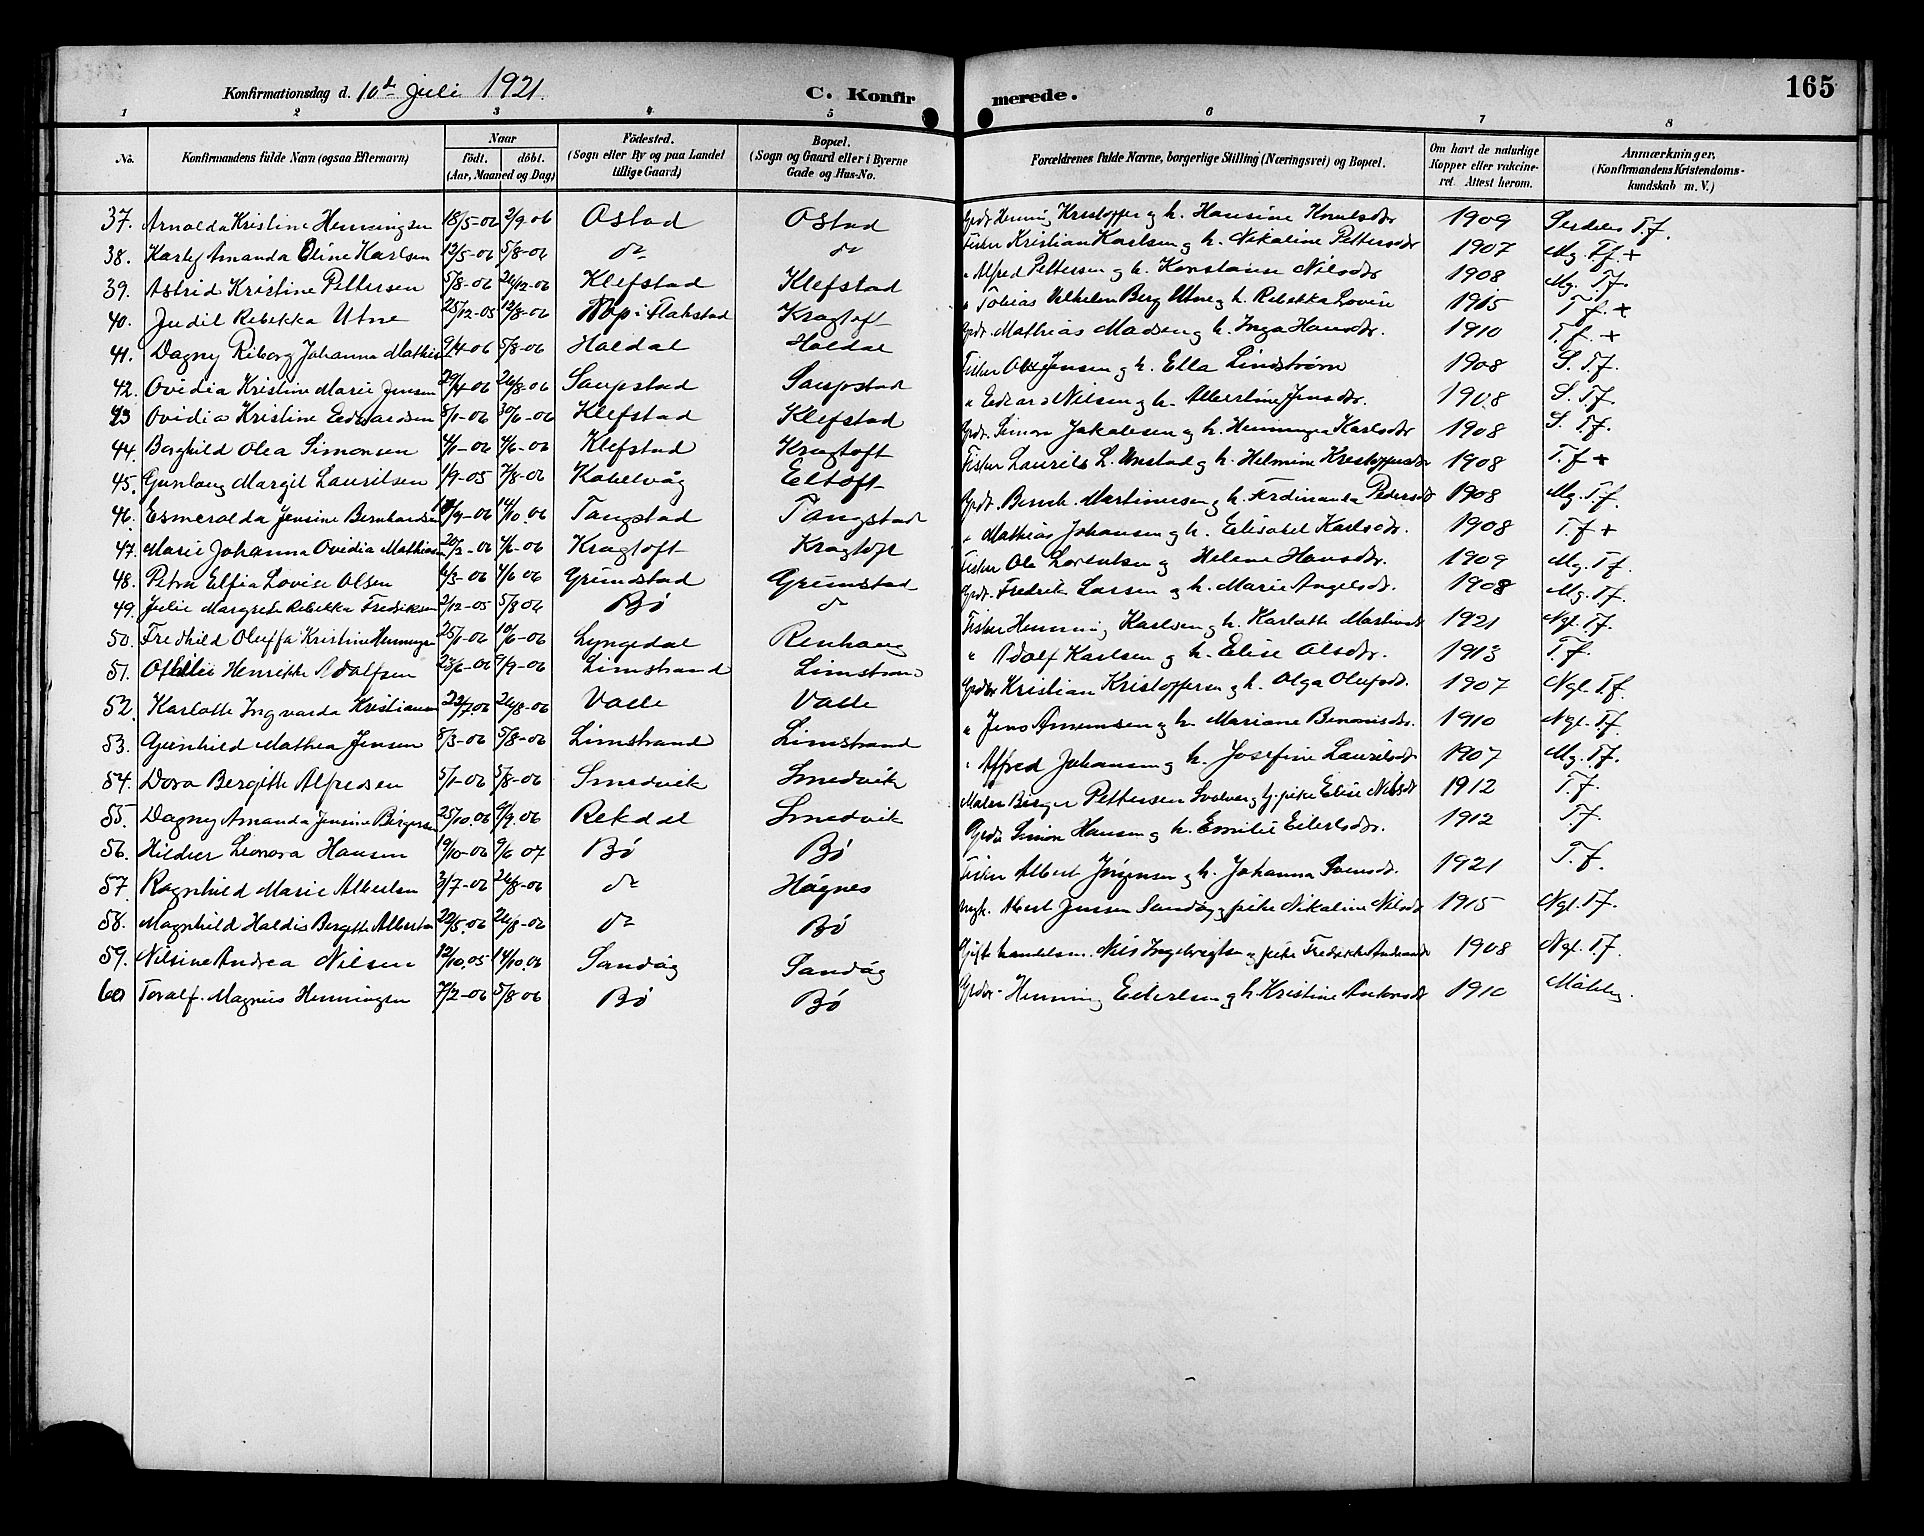 Konfirmationsdag d. 10de Juli 1921. C. Konfirmerede. 165
1 2 3 4 5 6 7 8
No. Konfirmandens fulde Navn (ogsaa Efternavn) Naar födt. döbt. (Aar, Maaned og Dag) Födested. (Sogn eller By og paa Landet tillige Gaard) Bopæl. (Sogn og Gaard eller i Byerne Gade og Hus-No. Forældrenes fulde Navne, borgerlige Stilling (Næringsvei) og Bopæl. Om havt de naturlige Kopper eller vakcineret. Attest herom. Anmærkninger. (Konfirmandens Kristendomskundskab m. V.)
37. Arnolda Kristine Henningsen 18/5-06 2/9 06 Ostad Ostad Grdr. Henning Kristoffer og h. Hansine 1909 T.f.
38. Karly Amanda Eline Karlsen 12/5-06 5/8-06 do do Fisker Kristian Karlsen og h. Nikoline Pettersdtr 1907 Mg. T.f. +
39. Astrid Kristine Pettersen 5/8-06 26/12-06 Klefstad Klefstad " Alfred Pettersen og h. Konstanse Nilsdtr 1908 Mg. T.f.
40. Judit Rebekka Utne 25/12-05 12/8-06 Nap i Flakstad Kragtoft " Tobias Vilhelm Berg Utne og h. Rebekka Lovise 1915 T.f. +
41. Dagny Riborg Johanna Mathis 9/4-06 5/8-06 Haldal Haldal Grdr. Mathias Madsen og h. Inga Hansdtr. 1910 T.f. +
42. Ovidia Kristine Marie Jensen 29/4-06 26/8-06 Saupstad Saupstad Fisker Ole Jensen og h. Ella Lindstrøm 1908 S. T.f.
43 Ovidia Kristine Edvardsen 8/1-06 30/6-06 Klefstad Klefstad " Edvard Nilsen og h. Albertine Jensdtr. 1908 S. T.f.
44. Borghild Olea Simonsen 4/1-06 4/6-06 Klefstad Kragtoft Grdr. Simon Jakobsen og h. Henninga Karlsdtr 1908 S. T.f.
45. Gunlaug Margit Lauritsen 1/9-05 7/8-06 Kabelvåg Eltoft Fisker Laurits L. Unstad og h. Helmine Kristoffersdtr 1908 T.f +
46. Esmeralda Jensine Bernhardsen /9-06 14/10.06 Tangstad Tangstad Grdr. Bernh. Martinussen og h. Ferdinanda Pedersdt 1908 Mg. T.f.
47. Marie Johanna Ovidia Mathisen 20/2-06 4/6-06 Kragtoft Kragtoft " Mathias Johansen og h. Elisabet Karlsdtr. 1908 T.f +
48. Petra Elfia Lovise Olsen 6/3-06 4/6 06 Grundstad Grimstad Fisker Ole Lorentsen og Helene Hansdtr. 1909 Mg. T.f.
49. Julie Margrete Rebekka Fredriksen 2/12-05 5/8 06 Bö do Grdr. Fredrik Larsen og h. Marie Angelsdtr. 1908 Mg. T.f.
50. Fredhild Oluffa Kristine Henninge 25/1-06 10/6-06 Lyngedal Renhaug Fisker Henning Karlsen og h. Karlotte Martinsdt 1921 Ngl. T.f.
51. Otilie Henrikke Adolfsen 23/6-06 9/9-06 Limstrand Limstrand " Adolf Karlsen og h. Elise Olsdtr. 1913 T.f.
52. Karlotte Ingvarda Kristiansen 22/7.06 26/8-06 Valle Valle Grdbr Kristian Kristoffersen og h. Olga Olufsdt. 1907 Ngl. T.f.
53. Gunhild Mathea Jensen 8/3-06 5/8-06 Limstrand Limstrand " Jens Amundsen og h. Mariane Benonisdtr. 1910 Ngl. T.f.
54. Dora Bergitte Alfredsen 5/1-06 5/8-06 Smedvik Smedvik " Alfred Johansen og h. Josefine Lauritsdt 1907 Mg. T.f.
55. Dagny Amanda Jensine Birgersen 25/10.06 9/9.06 Rekdal Smedvik Maler Birger Pettersen Svolvær og pike Elise Nilsdt 1912 T.f.
56. Hildur Leonora Hansen 19/10-06 9/6 07 Bö Bö Grdbr Simon Hansen og h. Emilie Eilertsdtr. 1912 T.f.
57. Ragnhild Marie Albertsen 3/7-06 26/8-06 do Hågnes Fisker Albert Jörgensen og h. Johanna Svensdt. 1921 T.f.
58. Magnhild Haldis Bergitte Albertsen 22/5.06 26/8-06 do Bö Ungk. Albert Jensen Sandåg og pike Nikoline Nilsdt 1915 Ngl. T.f.
59. Nilsine Andrea Nilsen 12/10.05 14/10.06 Sandåg Sandåg Gift handelsm. Nils Ingebrigtsen og pike Fredrikke 1908 Ngl. T.f.
60 Toralf Magnus Henningsen 7/2-06 5/8 06 Bö Bö Grdbr. Henning Eilertsen og h. Kristine Antonsdt 1910